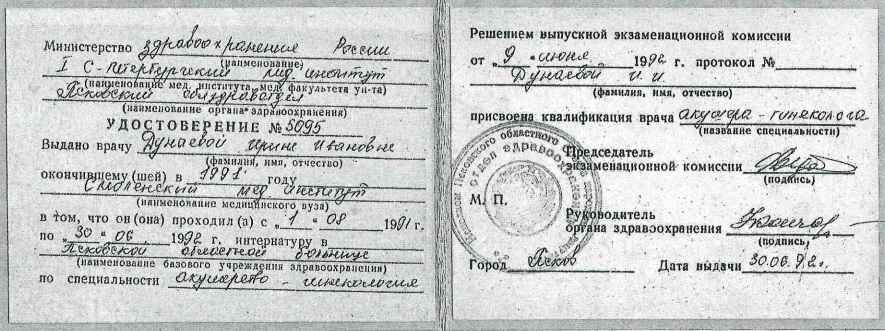 Министерство здравоохранения России
(наименование)
I С-Петербургский мед. институт
(наименование мед. института, мед. факультета ун-та)
Псковский облздравотдел
(наименование органа здравоохранения)
УДОСТОВЕРЕНИЕ № 5095
Выдано врачу Дунаевой Ирине Ивановне
(фамилия, имя, отчество)
окончившему (шей) в 1991 году
Смоленский мед институт
(наименование медицинского вуза)
в том, что он (она) проходил (а) с „ 1 “ 08 1991 г.
по „ 30 “ 06 1992 г. интернатуру в
Псковской областной больнице
(наименование базового учреждения здравоохранения)
по специальности акушерство - гинекология
Решением выпускной экзаменационной комиссии
от „ 9 “ июня 1992 г. протокол №
Дунаевой И. И.
(фамилия, имя, отчество)
присвоена квалификация врача акушера - гинеколога
(название специальности)
Председатель
экзаменационной комиссии
(подпись)
М. П.
Руководитель
органа здравоохранения
(подпись)
Город Псков Дата выдачи 30.06.92 г.
Псковского областного
отдел здравоохранения